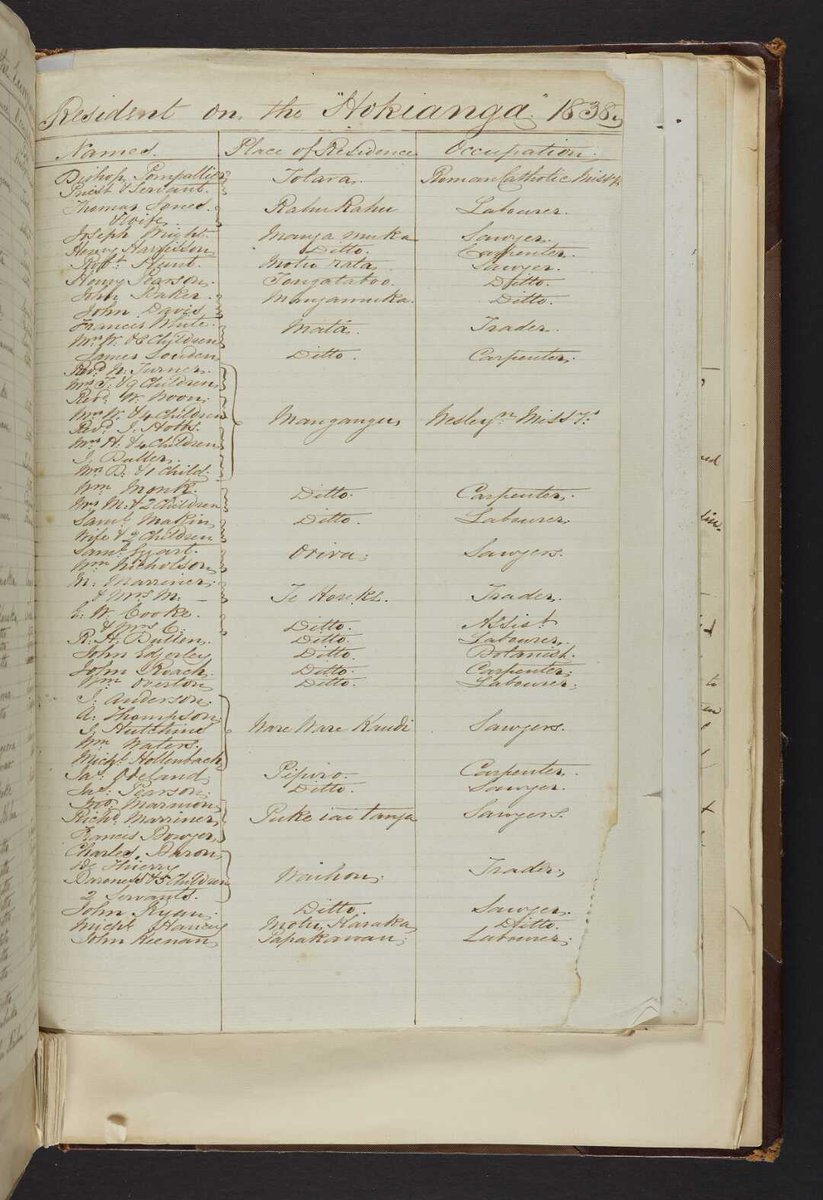 Resident on the "Hokianga" 1838
Names Place of Residence Occupation
Bishop Pompallier Totara Roman Catholic Missy
Priest & Servant
Thomas Jones Rahu Rahu Labourer
& Wife
Joseph Wright Manga muka Sawyer
Henry Harrison Ditto Carpenter
Robt Hunt Motu rata Sawyer
Henry Pearson Tongatatoo Ditto
John Baker Mangamuka Ditto
John Davis
Francis White Mata Trader
Mrs W. & 8 Children
James Louden Ditto Carpenter
Revd N. Turner
Mrs T. & 9 Children
Revd W. Woon
Mrs W. & 4 Children Mangangu Wesleyn Missys
Revd J. Hobbs
Mrs H. & 4 Children
J. Buller
Mrs B. & 1 Child
Wm Monk Ditto Carpenter
Mrs M. & 2 Children
Saml Makin Ditto Labourer
Wife & 2 Children
Saml Oriva Sawyers
Wm Nicholson
N. Marriner Te Horeke Trader
& Mrs M.
E. W. Cooke Ditto Assist
& Mrs C.
R. H. Ditto Labourer
John Edgerley Ditto Botanist
John Roach Ditto Carpenter
Wm Overton Ditto Labourer
J. Anderson
A. Thompson
J. Hutchins Ware Ware Kaudi Sawyers
Wm Waters
Michl Hollenback
Jas Ireland Pipiro Carpenter
Jas Pearson Ditto Sawyer
Jno Marmon
Richd Marriner Puke iai tanga Sawyers
Francis Bowyer
Charles Baron
De Thierry Waihou Trader
Baroness & 5 Children
2 Servants
John Ryan Ditto Sawyer
Michl Motu Karaka Ditto
John Keenan Papakawau Labourer